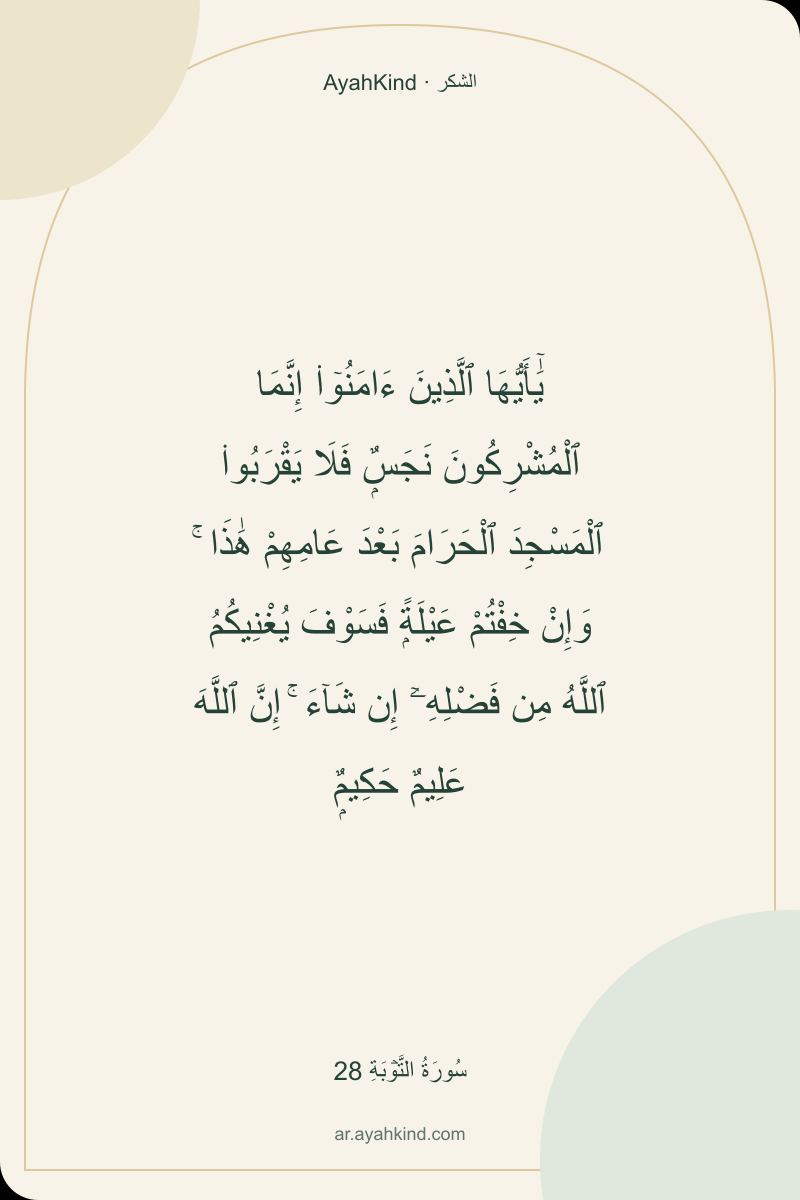 AyahKind · الشكر
يَٰٓأَيُّهَا ٱلَّذِينَ ءَامَنُوٓا۟ إِنَّمَا
ٱلْمُشْرِكُونَ نَجَسٌۭ فَلَا يَقْرَبُوا۟
ٱلْمَسْجِدَ ٱلْحَرَامَ بَعْدَ عَامِهِمْ هَٰذَا ۚ
وَإِنْ خِفْتُمْ عَيْلَةًۭ فَسَوْفَ يُغْنِيكُمُ
ٱللَّهُ مِن فَضْلِهِۦٓ إِن شَآءَ ۚ إِنَّ ٱللَّهَ
عَلِيمٌ حَكِيمٌۭ
سُورَةُ التَّوۡبَةِ 28
ar.ayahkind.com